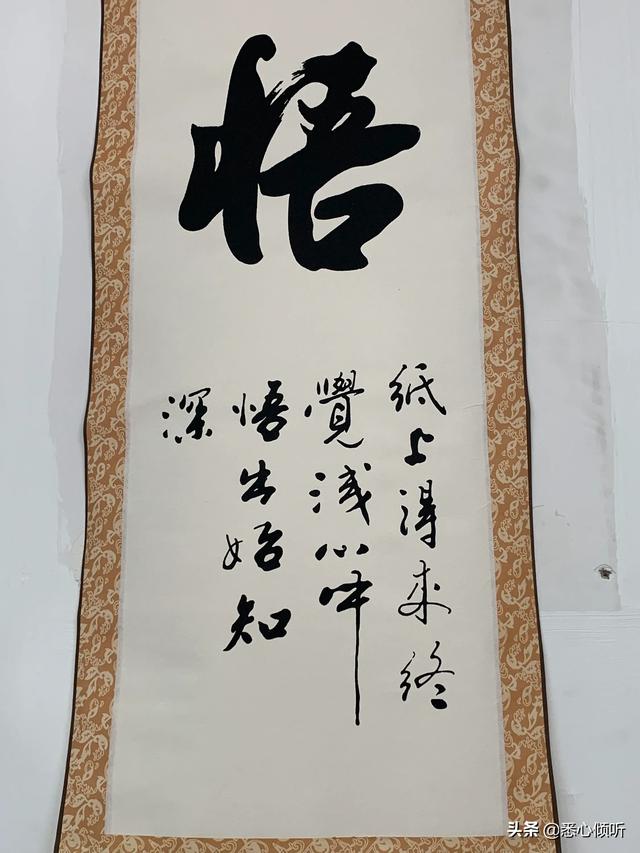 悟
紙上得来終
覺浅心中
悟出始知
深
头条 @悉心倾听